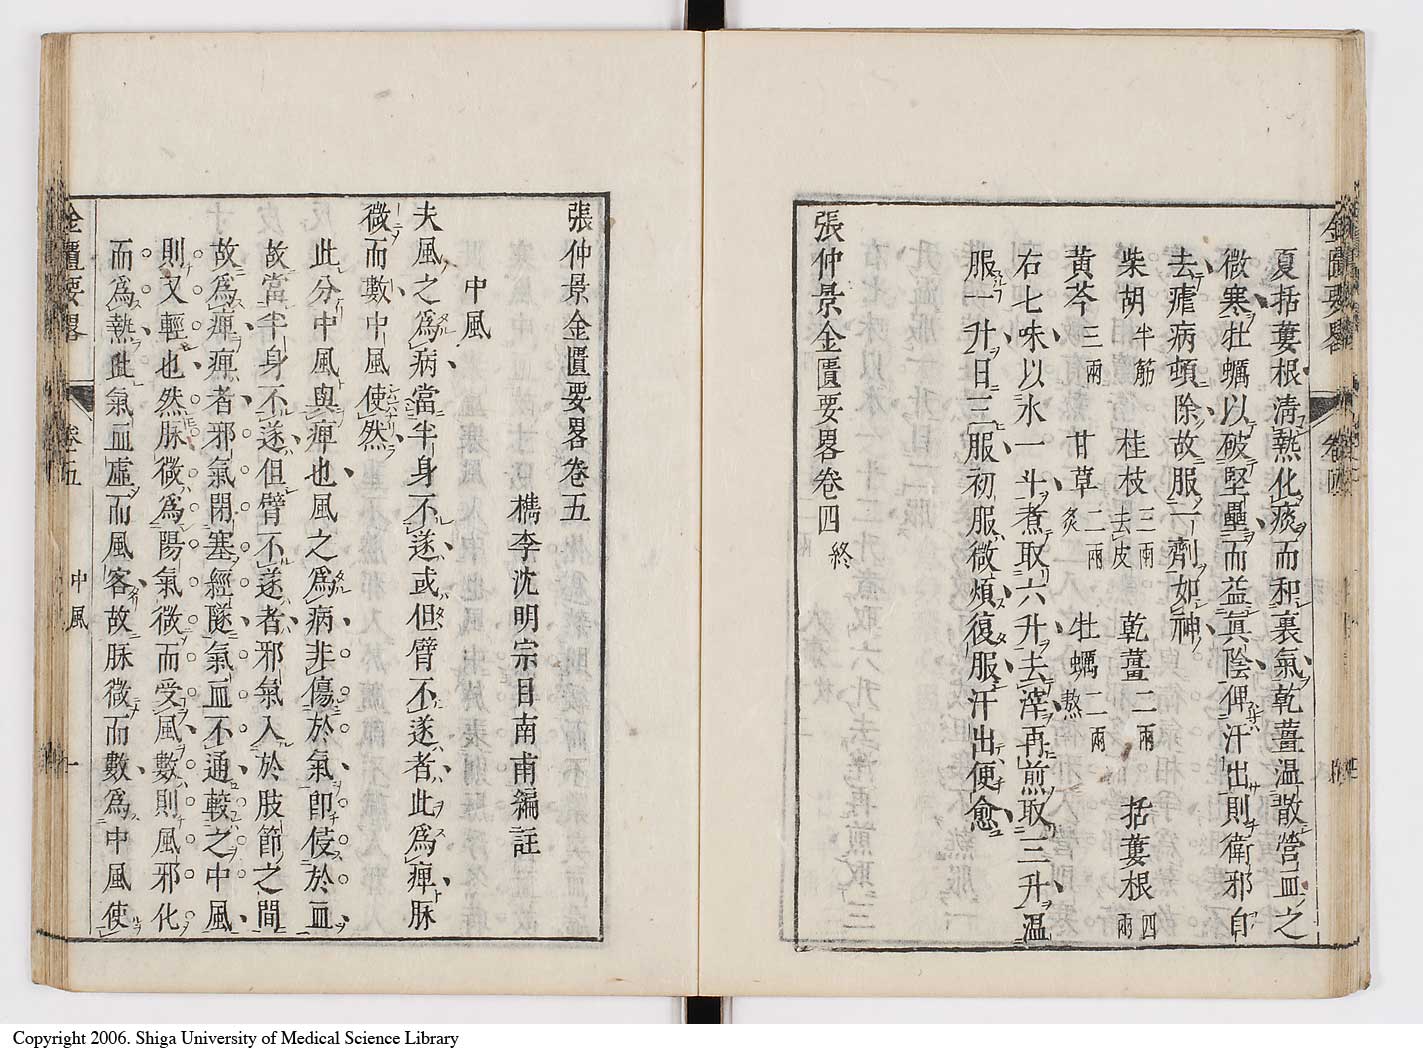 夏括蔞根淸熱化痰而和裏氣乾薑温散營血之
微寒牡蠣以破堅壘而益眞陰俾汗出則衛邪自
去瘧病頓除故服一劑如神
柴胡半觔 桂枝三兩去皮 乾薑二兩 括蔞根四兩
黄芩三兩 甘草二兩炙 牡蠣二兩熬
右七味以水一斗煮取六升去滓再煎取三升温
服一升日三服初服微煩復服汗出便愈
張仲景金匱要畧卷四 終
張仲景金匱要畧卷五
檇李沈明宗目南甫編註
中風
夫風之爲病當半身不遂或但臂不遂者此爲痺脉
微而數中風使然
此分中風與痺也風之爲病非傷於氣卽侵於血
故當半身不遂但臂不遂者邪氣入於肢節之間
故爲痺痺者邪氣閉塞經隧氣血不通較之中風
則又輕也然脉微爲陽氣微而受風數則風邪化
而爲熱此氣血虛而風客故脉微而數爲中風使
金匱要畧 卷五 中風 一
Copyright 2006. Shiga University of Medical Science Library